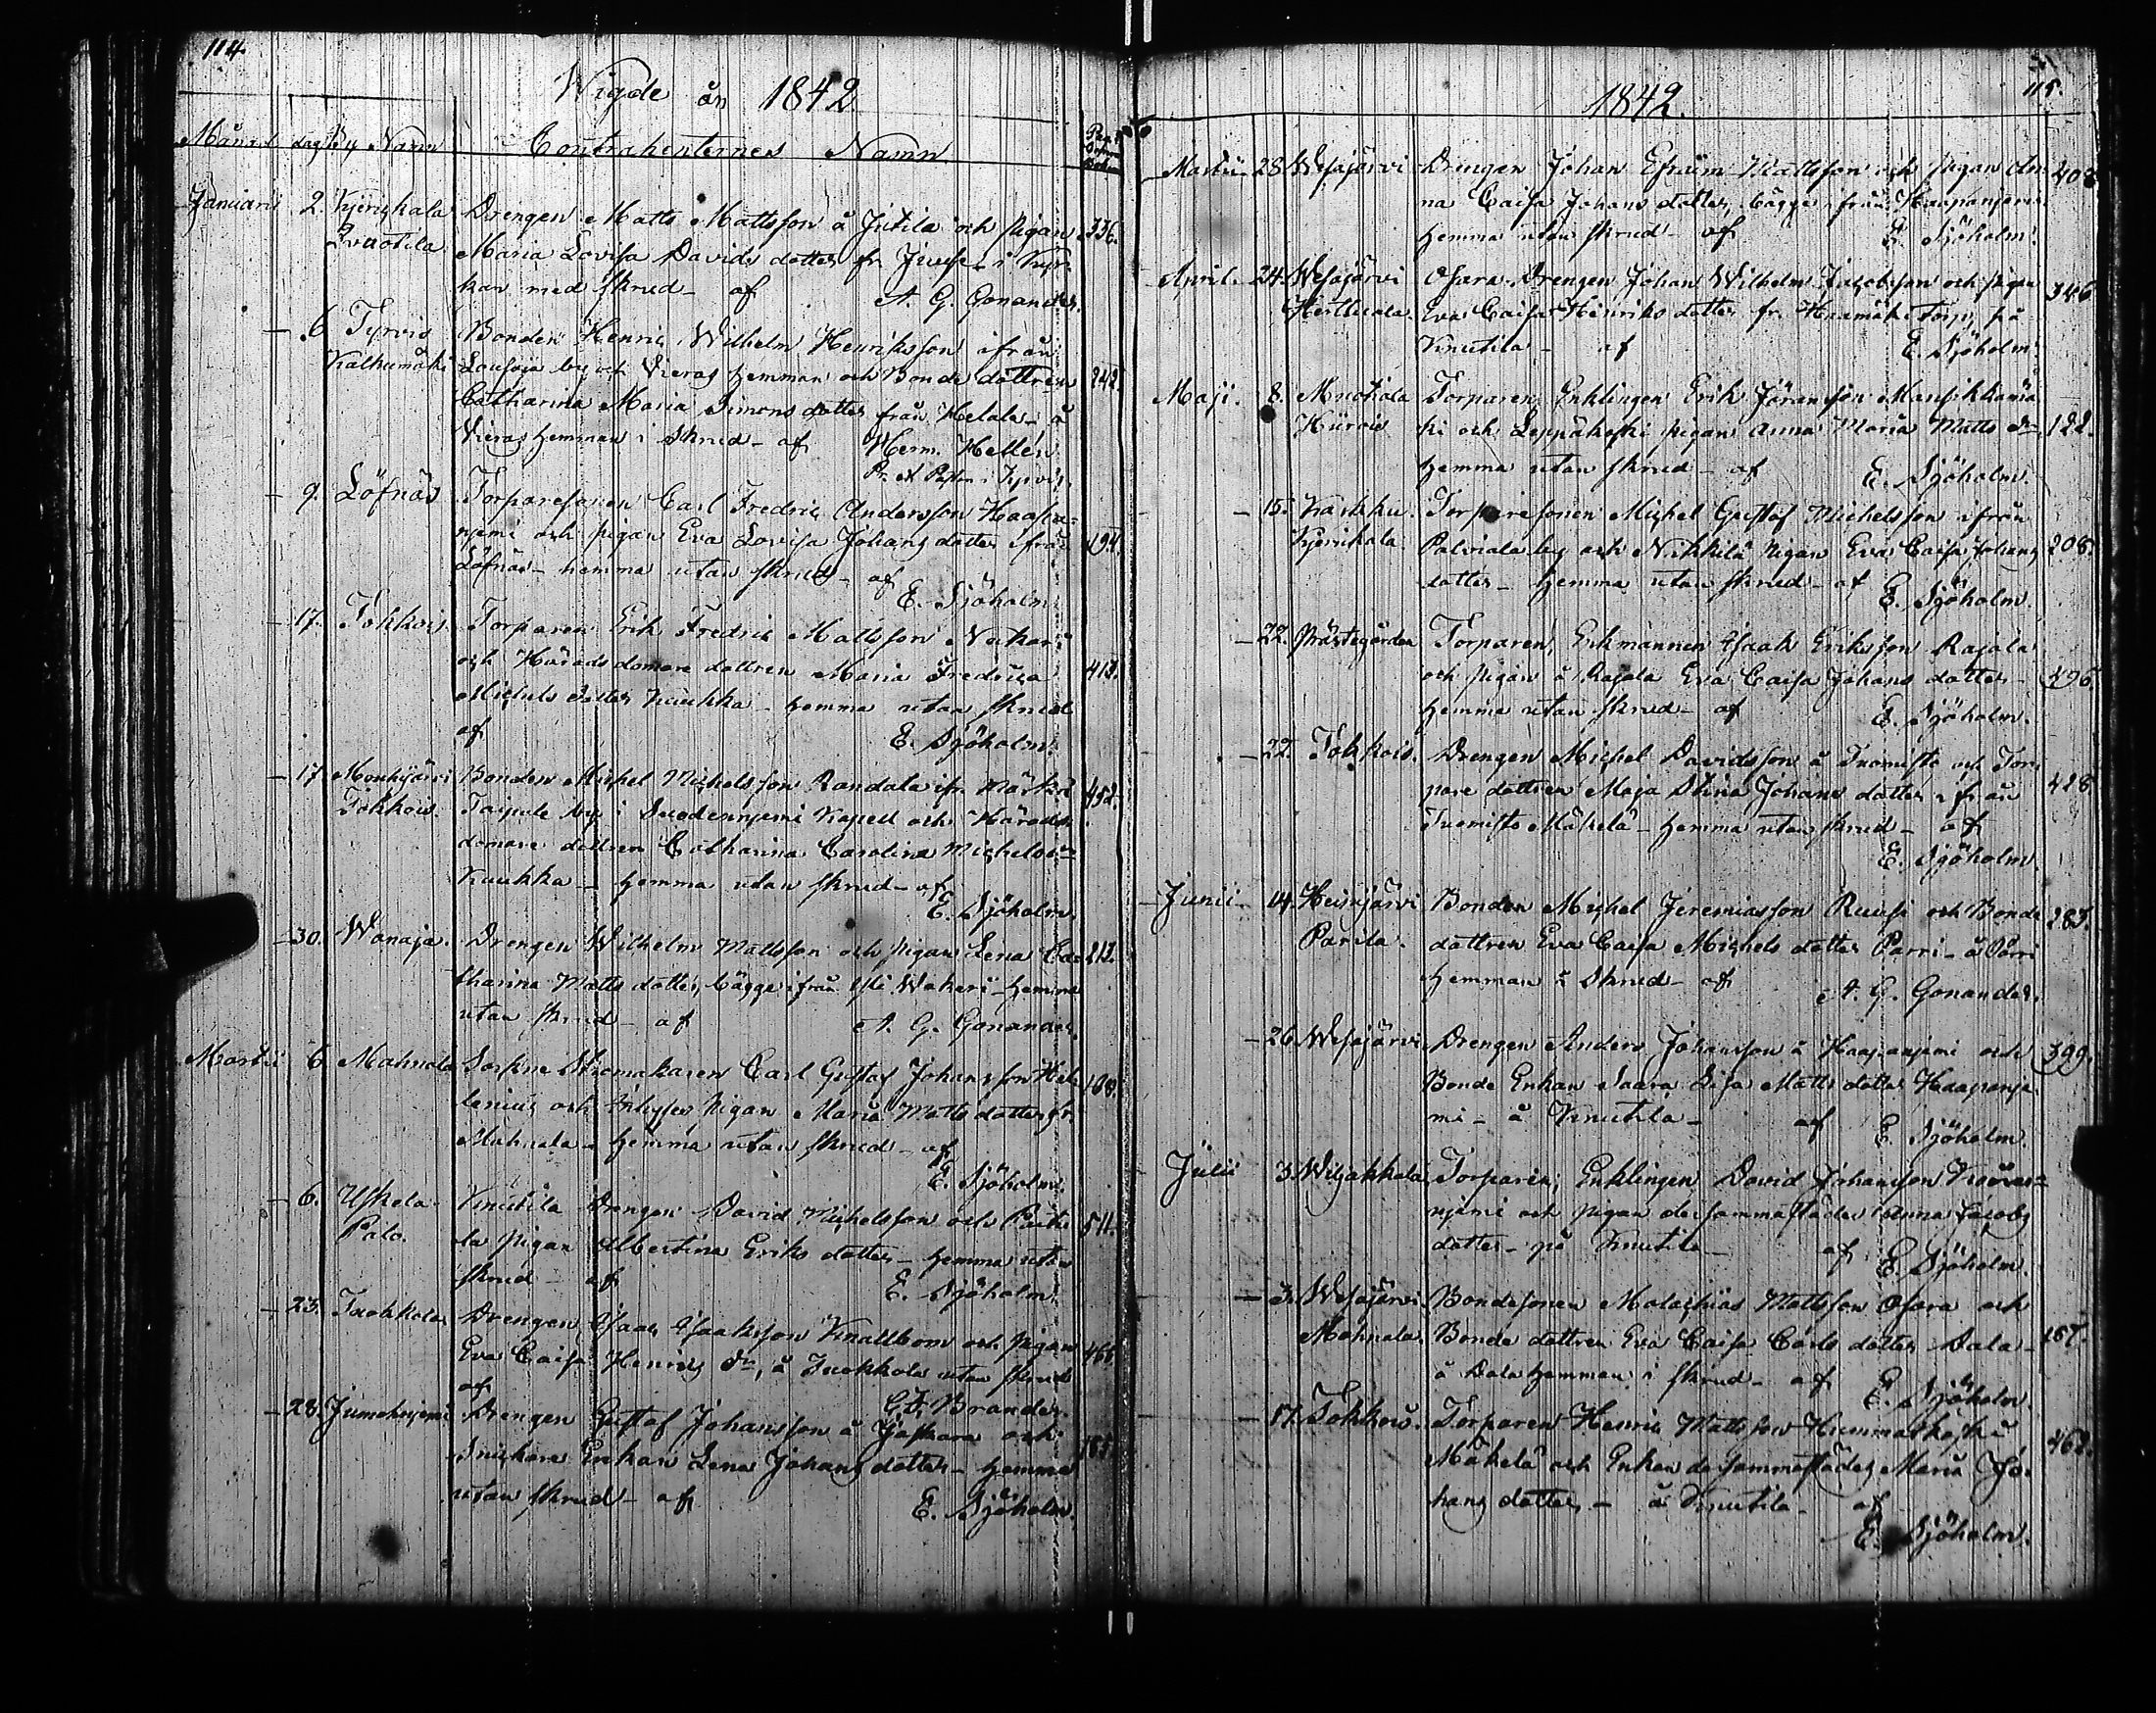 114.
Wigde år 1842
Månad dag By Namn Contrahenternes Namn
Januari 2. Kyröskala Drengen Matts Mattsson å Jutila och pigan 336.
Maria Lovisa Davids dotter fr. i Kyr-
kan med skrud - af A. G. Gonander.
- 6 Tyrvis Bonden Henric Wilhelm Henriksson ifrån
Kalkumäki by och Vieras hemman och Bonde dottren 242.
Catharina Maria Simons dotter från Hetala - å
Vieras hemman i Skrud - af Herm. Hellén
Pr. et Past. i Tyrvis.
- 9. Löfnäs Torparesonen Carl Fredric Andersson Haapa-
njemi och pigan Eva Lovisa Johans dotter ifrån 194.
Löfnäs - hemma utan skrud - af
E. Sjöholm.
- 17. Tokkois Torparen Erik Fredric Mattsson
och Härads domare dottren Maria Fredrica 418.
Michels dotter Kuukka - hemma utan skrud
af E. Sjöholm.
- 17. Mouhijärvi Bonden Michel Michelsson Randala ifr. 452.
Tokkois. Taipale by i Suodenniemi Kapell och Härads
domare dottren Catharina Carolina Michels dr
Kuukka - hemma utan skrud - af
E. Sjöholm.
- 30. Wanaja. Drengen Wilhelm Mattsson och pigan Lena Ca- 212.
tharina Matts dotter, bägge ifrån Yli Wakeri - hemma
utan skrud - af A. G. Gonander.
Martii 6 Mahnala Carl Gustaf Johansson Hel-
lenius och pigan Maria Matts dotter fr. 108.
Mahnala - hemma utan skrud - af
E. Sjöholm.
- 6. Uskela Knutila Drengen David Michelsson och 511.
Palo. la pigan Albertina Eriks dotter - hemma utan
skrud - af E. Sjöholm.
- 23. Tuokkola Drengen Isaac Isaksson Knallbom och pigan
Eva Caisa Henrics dr, å Tuokkola utan skrud 466.
af Brander.
- 28. Jumesniemi Drengen Gustaf Johansson å och
Snickare Enkan Lena Johans dotter - hemma
utan skrud - af E. Sjöholm.
115.
1842.
Martii - 28. Wesajärvi Drengen Johan Efraim Mattsson och pigan An-
na Caisa Johans dotter, bägge ifrån Haapanjemi
hemma utan skrud - af E. Sjöholm.
April. - 24. Wesajärvi Osara Drengen Johan Wilhelm Jacobsson och pigan 346
Herttuala. Eva Caisa Henriks dotter fr. Torp, på
Knutila - af E. Sjöholm.
Maji. 8. Muotiala Torparen Enklingen Erik Jöransson Mansikkamä-
ki och Leppäkoski pigan Anna Maria Matts dr 122.
hemma utan skrud - af E. Sjöholm.
- 15. Karkku. Torparesonen Michel Gustaf Michelsson ifrån
Kyröskala. Palviala by och Nikkilä pigan Eva Caisa Johans 208.
dotter - hemma utan skrud - af E. Sjöholm.
- 22. Prästegården Torparen, Enkmannen Isaak Eriksson Rajala
och pigan å Rajala Eva Caisa Johans dotter -
hemma utan skrud - af E. Sjöholm.
- 22. Tokkois. Drengen Michel Davidsson å Tuomisto och Tor-
pare dottren Maja Stina Johans dotter ifrån 428
Tuomisto Mäkelä - hemma utan skrud - af
E. Sjöholm.
Junii - 14. Heinijärvi Bonden Michel Jeremiasson Ruusi och Bonde 283.
Parila. dottren Eva Caisa Michels dotter Parri - å Parri
hemman i Skrud - af A. G. Gonander.
- 26. Wesajärvi Drengen Anders Johansson å Haapanjemi och 399.
Bonde Enkan Saara Lisa Matts dotter Haapanje-
mi - å Knutila - af E. Sjöholm.
Julii 3. Wiljakkala Torparen, Enklingen David Johansson
njemi och pigan dersammastädes Anna Jacobs
dotter - på Knutila - af E. Sjöholm.
- 3. Wesajärvi Bondesonen Malachias Mattsson Osara och
Mahnala. Bonde dottren Eva Caisa Carls dotter Dala - 167.
å Dala hemman i skrud - af E. Sjöholm.
- 17. Tokkois. Torparen Henric Mattsson
Mäkelä och Enkan dersammastädes Maria Jo- 462.
hans dotter - å Knutila - af
E. Sjöholm.